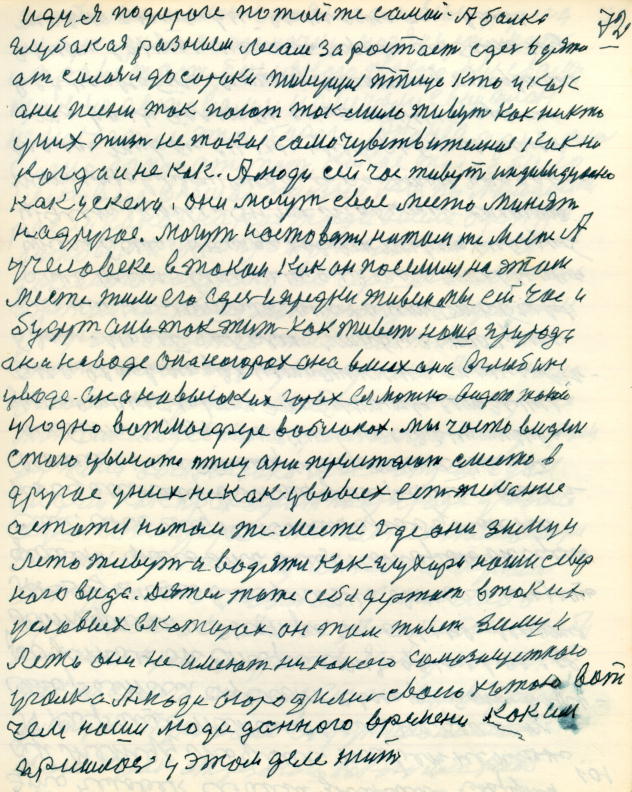 иду я подороге потойже самой. А балка 72
глубакая разным лесам заростает сдеs водяти
ат саловя до сароки живущия птицы кто и как
ани песни так поют так мило живут как никто
уних жизн не такая само чувствителная как ни
когда и не как. А люди сей час живут индивидуално
как ускели. они могут свое место минят
на другое. могут настоват на том же месте А
учеловеке в таком как он поселилися на этом
месте жили его сдес и предки живем мы сей час и
будут ани так жит как живет наша природа
ана на воде она на горах ана в лесах она в глыбин
у воде. она на высоких горах ей можно видет какой
угодно ватмасфере вобласках. мы часто видем
стаго целые птиц ани перелетают с место в
другое уних не как увовсех ест желание
астатся на том же месте где они зиму и
лето живут и водяти как глухари наши север
ного вида. Дятел тоже себя держит в таких
условиях вкаторах он там живет зиму и
лето они не имеют никакого самозащитного
уголка Люди огородилис своего хатаю вот
чем наши люди данного времени каким
пришлос у этом деле жит